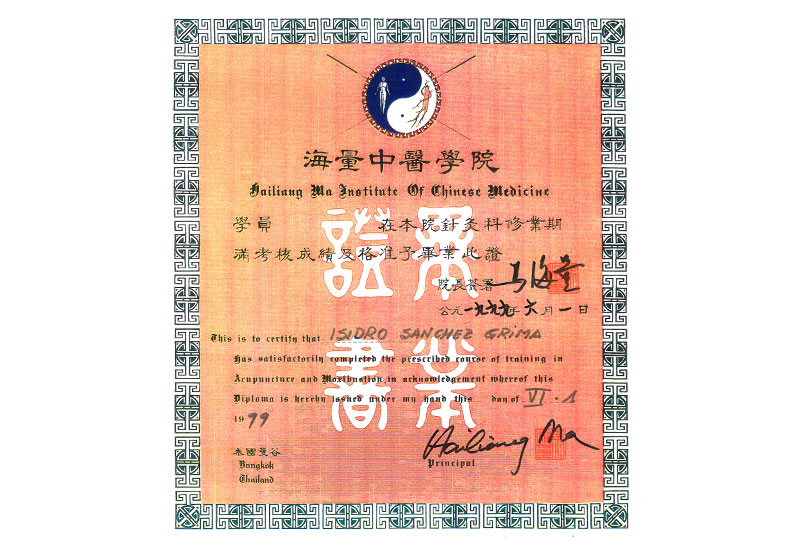 海量中醫學院
Hailiang Ma Institute Of Chinese Medicine
學員 在本院針灸科修業期
滿考核成績及格准予畢業此證
畢業
證書
院長簽署 马海量
公元一九九九年六月一日
This is to certify that ISIDRO SANCHEZ GRIMA
has satisfactorily completed the prescribed course of training in
Acupuncture and Moxibustion in acknowledgement whereof this
Diploma is hereby issued under my hand this day of VI . 1
1999
泰國曼谷
Bangkok
Thailand
Hailiang Ma
Principal